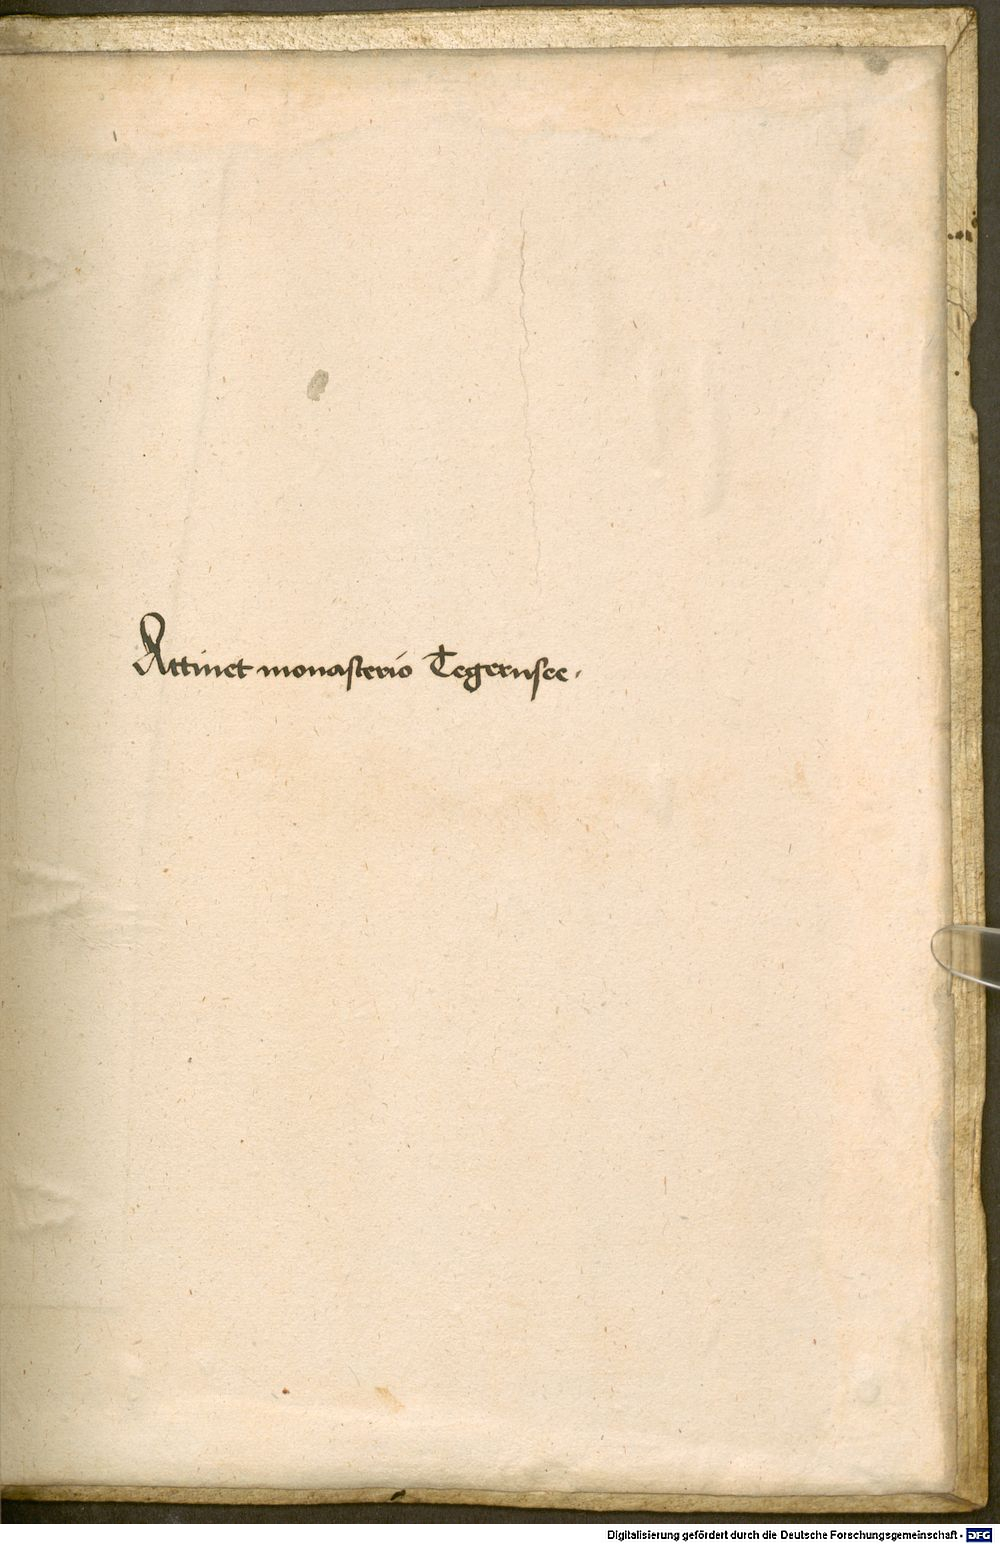 Attinet monasterio Tegernsee.
Digitalisierung gefördert durch die Deutsche Forschungsgemeinschaft - DFG